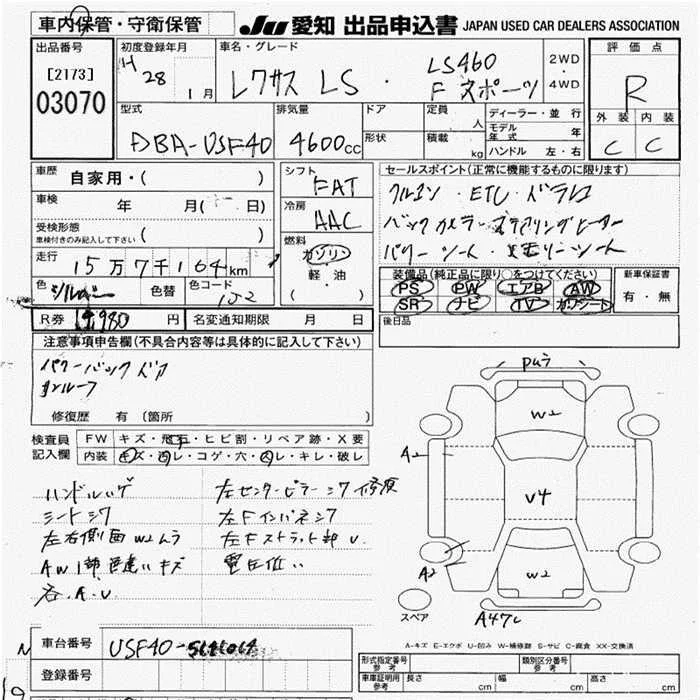 車内保管・守衛保管
JU 愛知 出品申込書 JAPAN USED CAR DEALERS ASSOCIATION
出品番号
[2173]
03070
初度登録年月
H 28 1月
車名・グレード
レクサス LS・LS460
Fスポーツ
2WD・4WD
評価点
R
外装 内装
C C
型式
DBA-USF40
排気量
4600cc
ドア
形状
定員 人
積載 kg
ディーラー・並行
モデル年式 年
ハンドル 左・右
車歴 自家用・( )
車検 年 月( 日)
受検形態
車検付きのみ記入して下さい ( )
走行 15万7千164km
色 シルバー 色替 色コード 1J2
R券 円
名変通知期限 月 日
シフト
FAT
冷房
AAC
燃料
ガソリン
軽・油
( )
セールスポイント(正常に機能するものに限ります)
クルコン・ETC・ドラレコ
バックカメラ・ステアリングヒーター
パワーシート・
装備品(純正品に限り)をつけてください
PS PW エアB AW
SR ナビ TV カワシート
新車保証書
有・無
後日品
注意事項申告欄(不具合内容等は具体的に記入して下さい)
パワーバックドア
サンルーフ
修復歴 有 (箇所 )
検査員記入欄
FW キズ・飛石・ヒビ割・リペア跡・X要
内装 キズ・汚レ・コゲ・穴・スレ・キレ・破レ
ハンドルハゲ
シートシワ
左右側面W2ムラ
AW1部色違いキズ
各A.U
左センターピラーシワ修復
左Fインパネシワ
左Fストラット部U.
電圧低い
W2
A2
V4
A2
W2
スペア
A-キズ E-エクボ U-凹み W-補修跡 S-サビ C-腐食 XX-交換済
車台番号
USF40-
登録番号
形式指定番号 参考
類別区分番号 参考
車庫証明用 参考
長さ cm
幅 cm
高さ cm